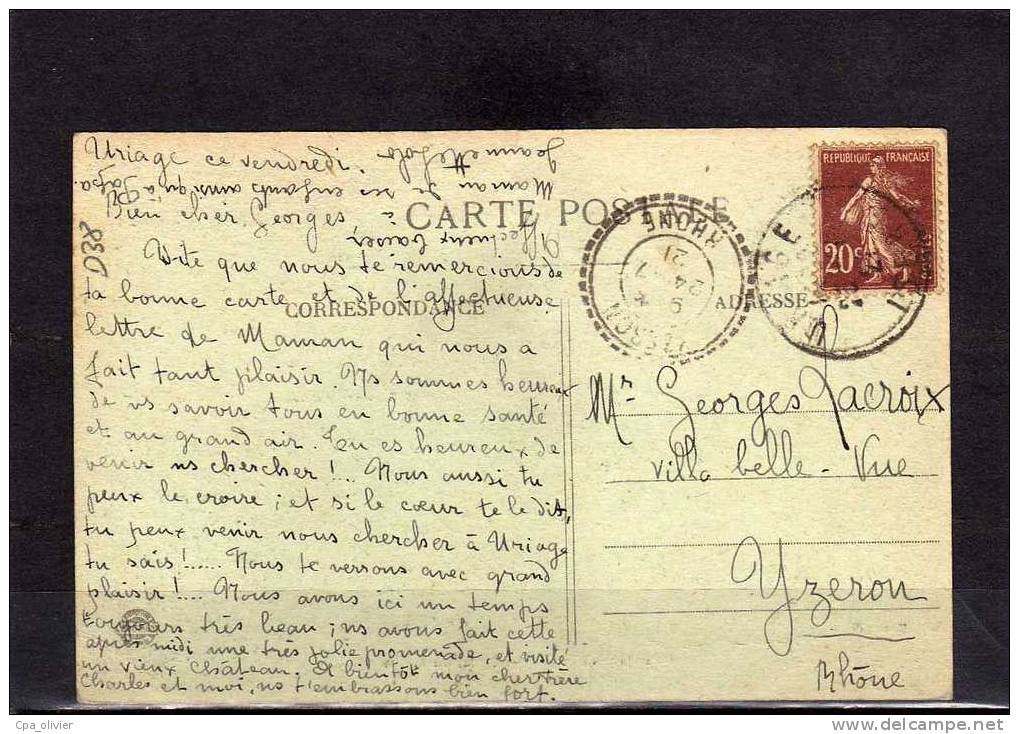 Uriage ce vendredi.
Bien cher Georges
CARTE POSTALE
Vite que nous te remercions de
ta bonne carte et de l'affectueuse
CORRESPONDANCE
lettre de Maman qui nous a
fait tant plaisir. Ns sommes heureux
de vs savoir tous en bonne santé
et au grand air. Tu es heureux de
venir ns chercher !... Nous aussi tu
peux le croire ; et si le cœur te le dit,
tu peux venir nous chercher à Uriage
tu sais !...... Nous te verrons avec grand
plaisir !... Nous avons ici un temps
toujours très beau ; ns avons fait cette
après midi une très jolie promenade, et visité
un vieux château. A bientôt mon cher frère
Charles et moi, ns t'embrassons bien fort.
Affectueux baisers
Maman de ses enfants ainsi qu'à Papa.
Jeannette Lolo
D38
ADRESSE
REPUBLIQUE FRANÇAISE
20 c
RHONE
21
24 - 7
9
Mr Georges Lacroix
Villa belle - Vue
Yzeron
Rhône
Cpa_olivier
http://www.delcampe.net